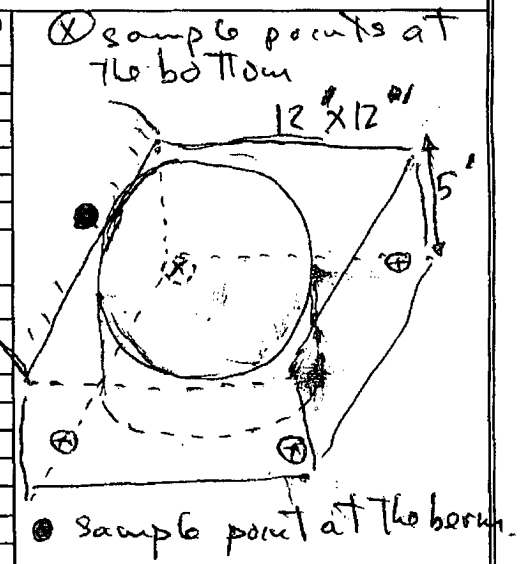 ⓧ sample points at
the bottom
12"x12"
5'
● sample point at the berm.